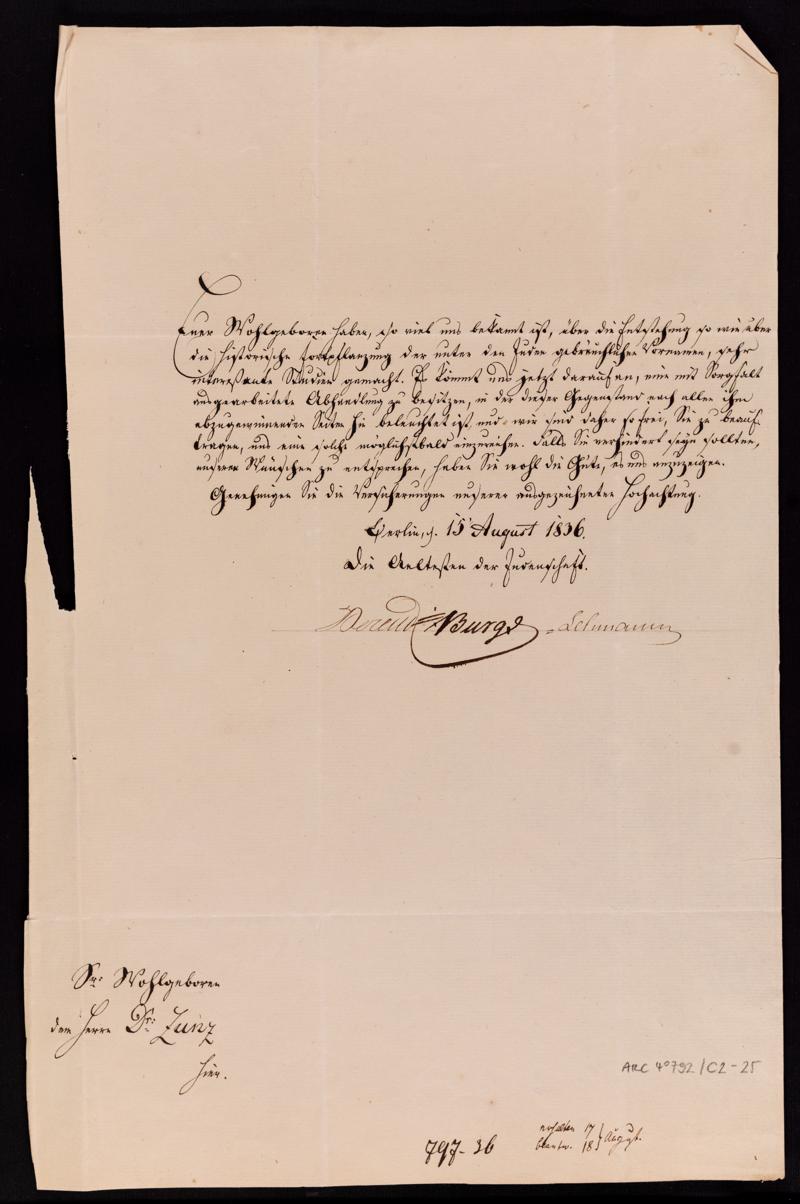 Euer Wohlgeboren haben, so viel uns bekannt ist, über die Entstehung so wie über
die historische Fortpflanzung der unter den Juden gebräuchlichen Vornamen, sehr
interessante Studien gemacht. Es kömmt uns jetzt darauf an, eine mit Sorgfalt
ausgearbeitete Abhandlung zu besitzen, in der dieser Gegenstand nach allen ihm
abzugewinnenden Seiten hin beleuchtet ist, und wir sind daher so frei, Sie zu beauf-
tragen, uns eine solche möglichst bald einzureichen. Falls Sie verhindert seyn sollten,
unseren Wünschen zu entsprechen, haben Sie wohl die Güte, es uns anzuzeigen.
Genehmigen Sie die Versicherungen unserer ausgezeichneten Hochachtung.
Berlin, d. 15 August 1836.
Die Aeltesten der Judenschaft.
Berend Burg Lehmann
Sr. Wohlgeboren
dem Herrn Dr. Zunz
hier.
ARC 4° 792/C2-25
797-36
erhalten 17 } August.
beantw. 18